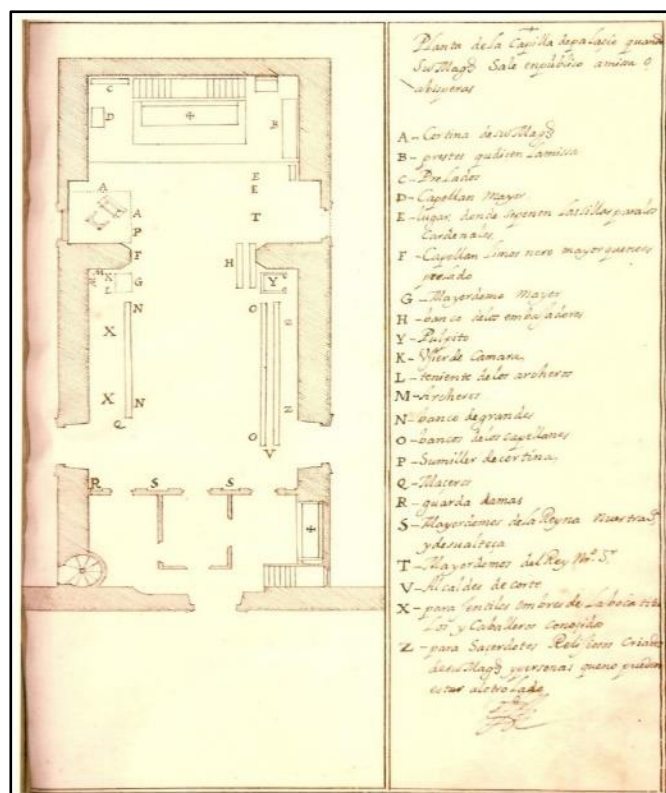 Planta de la Capilla de palacio quando
Su Magd Sale en publico a missa o
a bisperas
A - Cortina de su Magd
B - prestes que dicen la missa
C - Prelados
D - Capellan Mayor
E - lugar donde se ponen las sillas para los
Cardenales
F - Capellan limosnero mayor que no es
prelado
G - Mayordomo Mayor
H - banco de los embajadores
Y - Pulpito
K - Vjier de Camara
L - teniente de los archeros
M - Archeros
N - banco de grandes
O - bancos de los capellanes
P - Sumiller de cortina
Q - Maceros
R - guarda damas
S - Mayordomos de la Reyna nuestra
y de su alteça
T - Mayordomos del Rey Nro. Sr
V - Alcaldes de corte
X - para Gentiles ombres de la boca
y Caballeros
Z - para Sacerdotes Religiosos Criados
de su Magd y personas que no pueden
estar al otro lado
C
D
B
A
A
P
E
E
T
F
H
X
L
G
Y
N
O
X
X
N
Z
Q
O
V
R
S
S